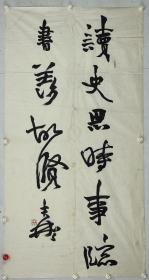 讀史思時事臨
書故賢